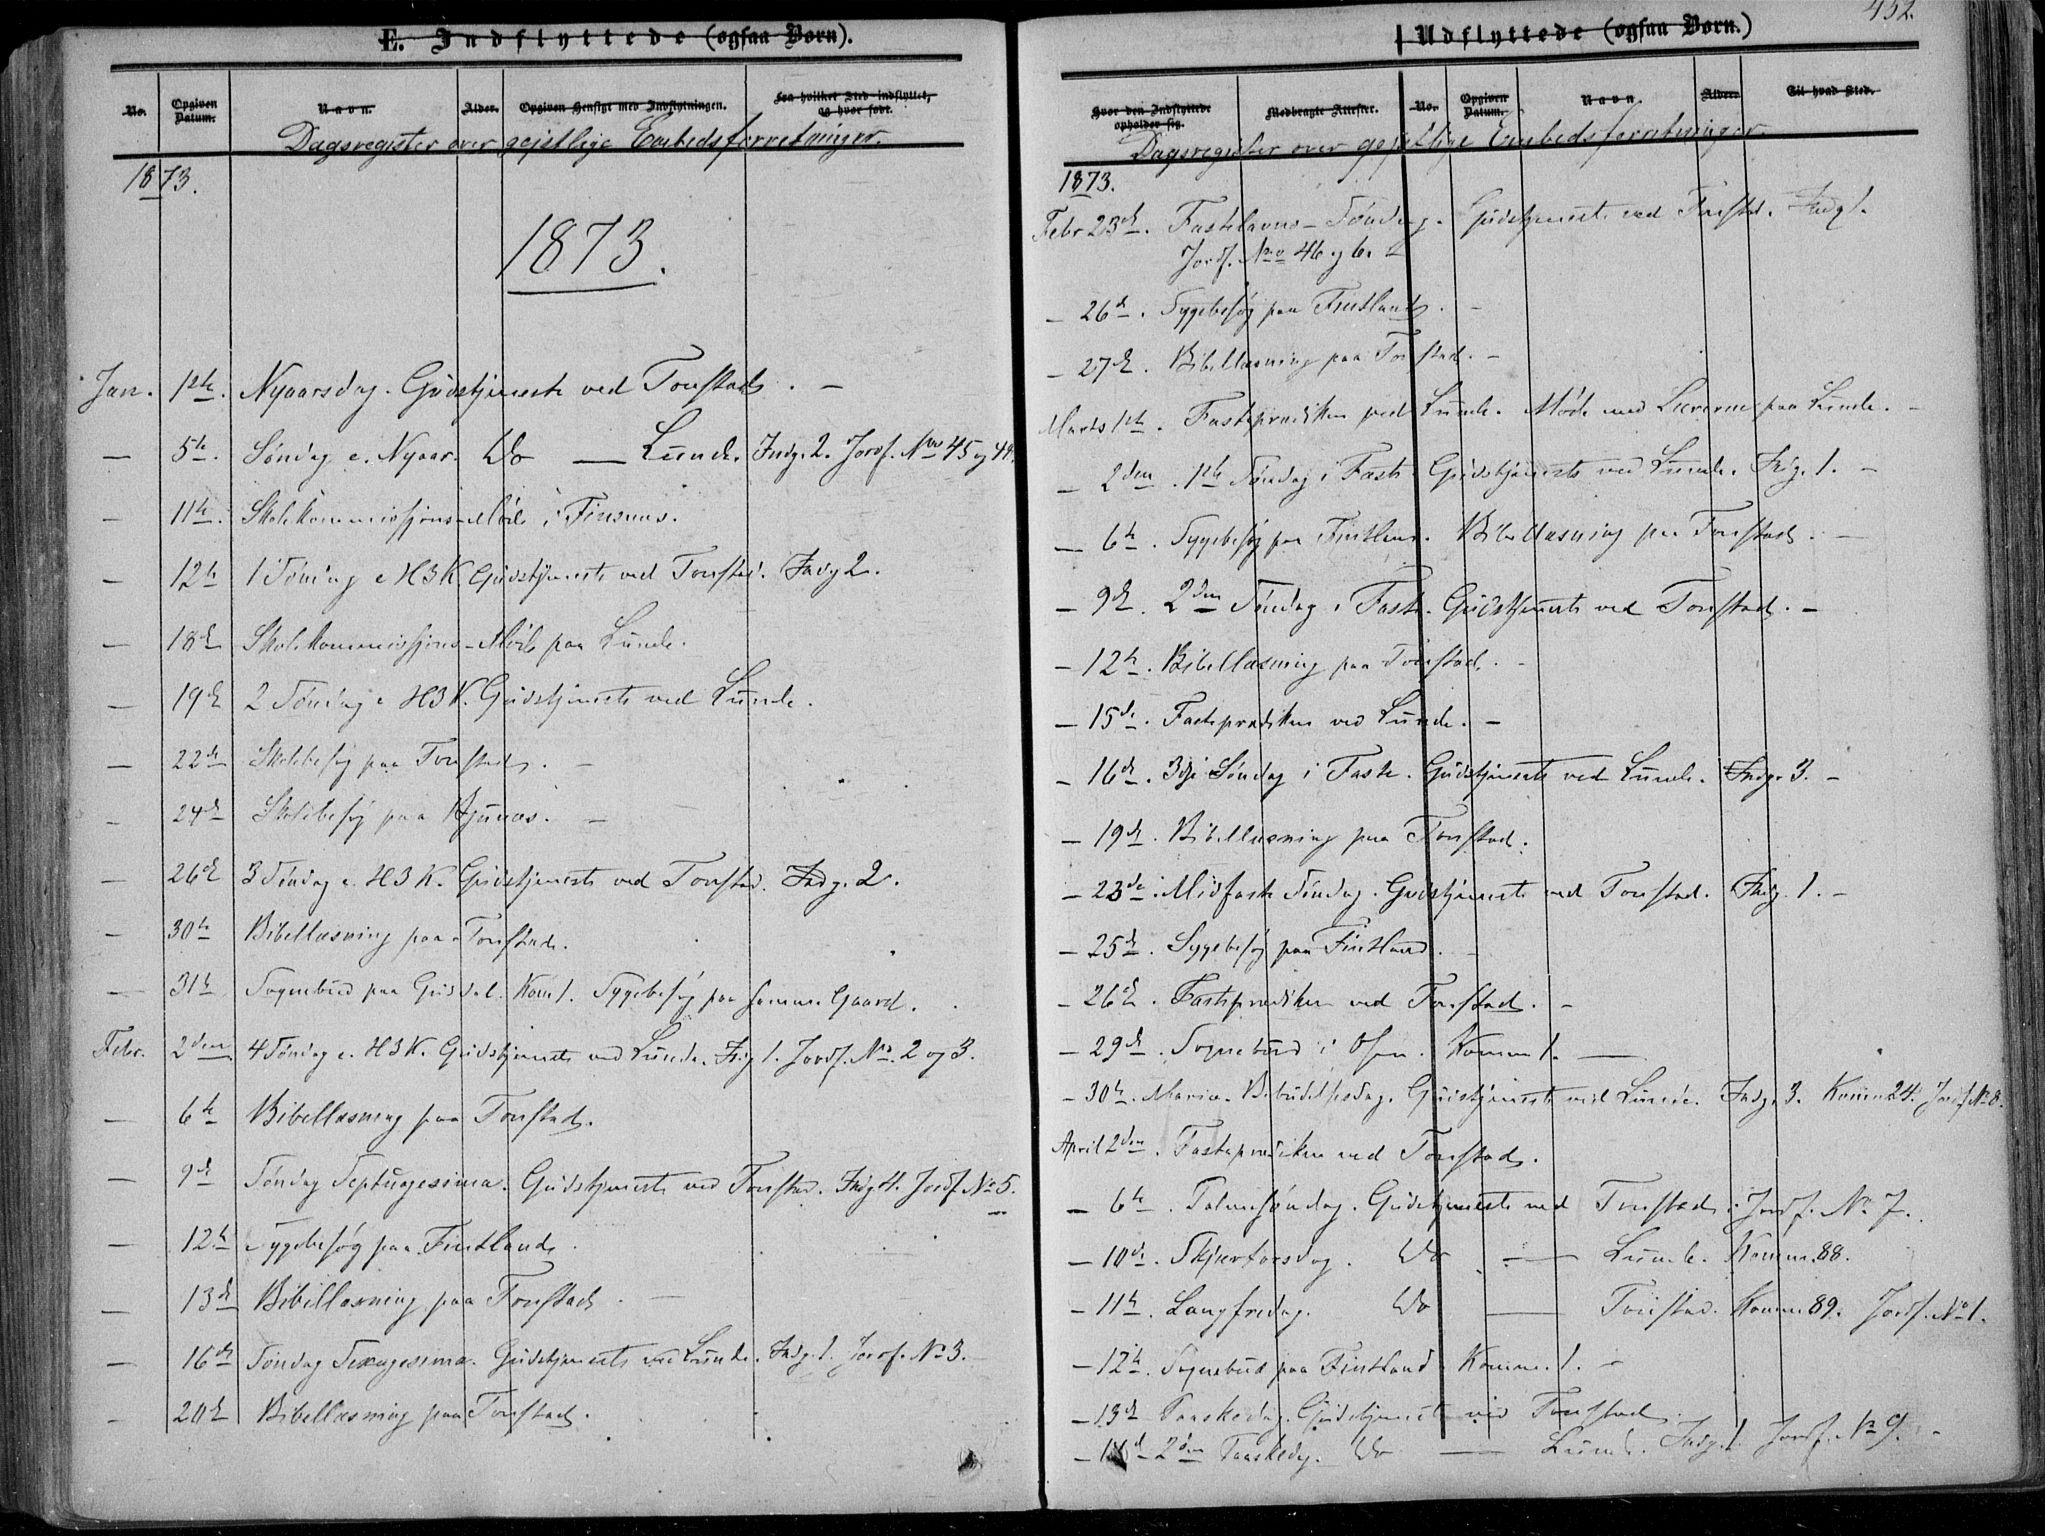 E. Indflyttede (ogsaa Børn).
No. Opgiven Datum. Navn. Alder. Opgiven Hensigt med Indflytningen. Fra hvilket Sted indflyttet, og hvor født.
Dagsregister over gejstlige Embedsforretninger.
1873.
1873.
Jan. 1ste. Nyaarsdag. Gudstjeneste ved Tonstad. -
— 5te. Søndag e. Nyaar. Do — Lunde. Indg. 2. Jordf. No 45 og 44.
— 11te. Skolekommissjons-Møde i Finsnæs.
— 12te 1 Søndag e H3K. Gudstjeneste ved Tonstad. Indg 2.
— 18de Skolekommissjons-Møde paa Lunde.
— 19de 2 Søndag e H3K. Gudstjeneste ved Lunde.
— 22de Skolebesøg paa Tonstad. -
— 24de Skolebesøg paa. -
— 26de 3 Søndag e. H3K. Gudstjeneste ved Tonstad. Indg. 2.
— 30te Bibellæsning paa Tonstad.
— 31te Sognebud paa Guddal. Kom 1. Sygebesøg paa samme Gaard.
Febr. 2den 4 Søndag e. H3K. Gudstjeneste ved Lunde. Indg 1. Jordf. No. 2 og 3.
— 6te Bibellæsning paa Tonstad.
— 9de Søndag Septuagesima. Gudstjeneste ved Tonstad. Indg 4. Jordf. No 5.
— 12te Sygebesøg paa Fintland.
— 13de Bibellæsning paa Tonstad. -
— 16de Søndag Sexagesima. Gudstjeneste ved Lunde. Indg. 1. Jordf. No 3.
— 20de Bibellæsning paa Tonstad.
452.
Udflyttede (ogsaa Børn.)
Hvor den Indflyttede opholder sig. Medbragte Attester. No. Opgiven Datum. Navn. Alder. Til hvad Sted.
Dagsregister over gejstlige Embedsforretninger.
1873.
Febr 23de. Fastelavns-Søndag. Gudstjeneste ved Tonstad. Indg 1.
Jordf. No 46 og 6.
— 26de. Sygebesøg paa Fintland. -
— 27de. Bibellæsning paa Tonstad. -
Marts 1ste. Fasteprædiken ved Lunde. Møde med Lærerne paa Lunde. -
— 2den. 1ste Søndag i Faste. Gudstjeneste ved Lunde. Indg. 1. -
— 6te. Sygebesøg paa Fintland. Bibellæsning paa Tonstad. -
— 9de. 2den Søndag i Faste. Gudstjeneste ved Tonstad. -
— 12te. Bibellæsning paa Tonstad. -
— 15de. Fasteprædiken ved Lunde. -
— 16de. 3dje Søndag i Faste. Gudstjeneste ved Lunde. Indg. 3. -
— 19de. Bibellæsning paa Tonstad.
— 23de. Midfaste Søndag. Gudstjeneste ved Tonstad. Indg. 1. -
— 25de. Sygebesøg paa Fintland. -
— 26de. Fasteprædiken ved Tonstad. -
— 29de. Sognebud i Osen. Komm 1. —
— 30te. Mariæ Bebudelsesdag. Gudstjeneste ved Lunde. Indg. 3. Komm 24. Jordf No 8.
April 2den. Fasteprædiken ved Tonstad.
— 6te. Palmesøndag. Gudstjeneste ved Tonstad. Jordf. No 7.
— 10de. Skjærtorsdag. Do — Lunde. Komm. 88.
— 11te. Langfredag. Do — Tonstad. Komm. 89. Jordf. No 1.
— 12te. Sognebud paa Fintland. Komm. 1. -
— 13de Paaskedag. Gudstjeneste ved Tonstad.
— 14de 2den Paaskedag. Do — Lunde. Indg. 1. Jordf. No 9. -